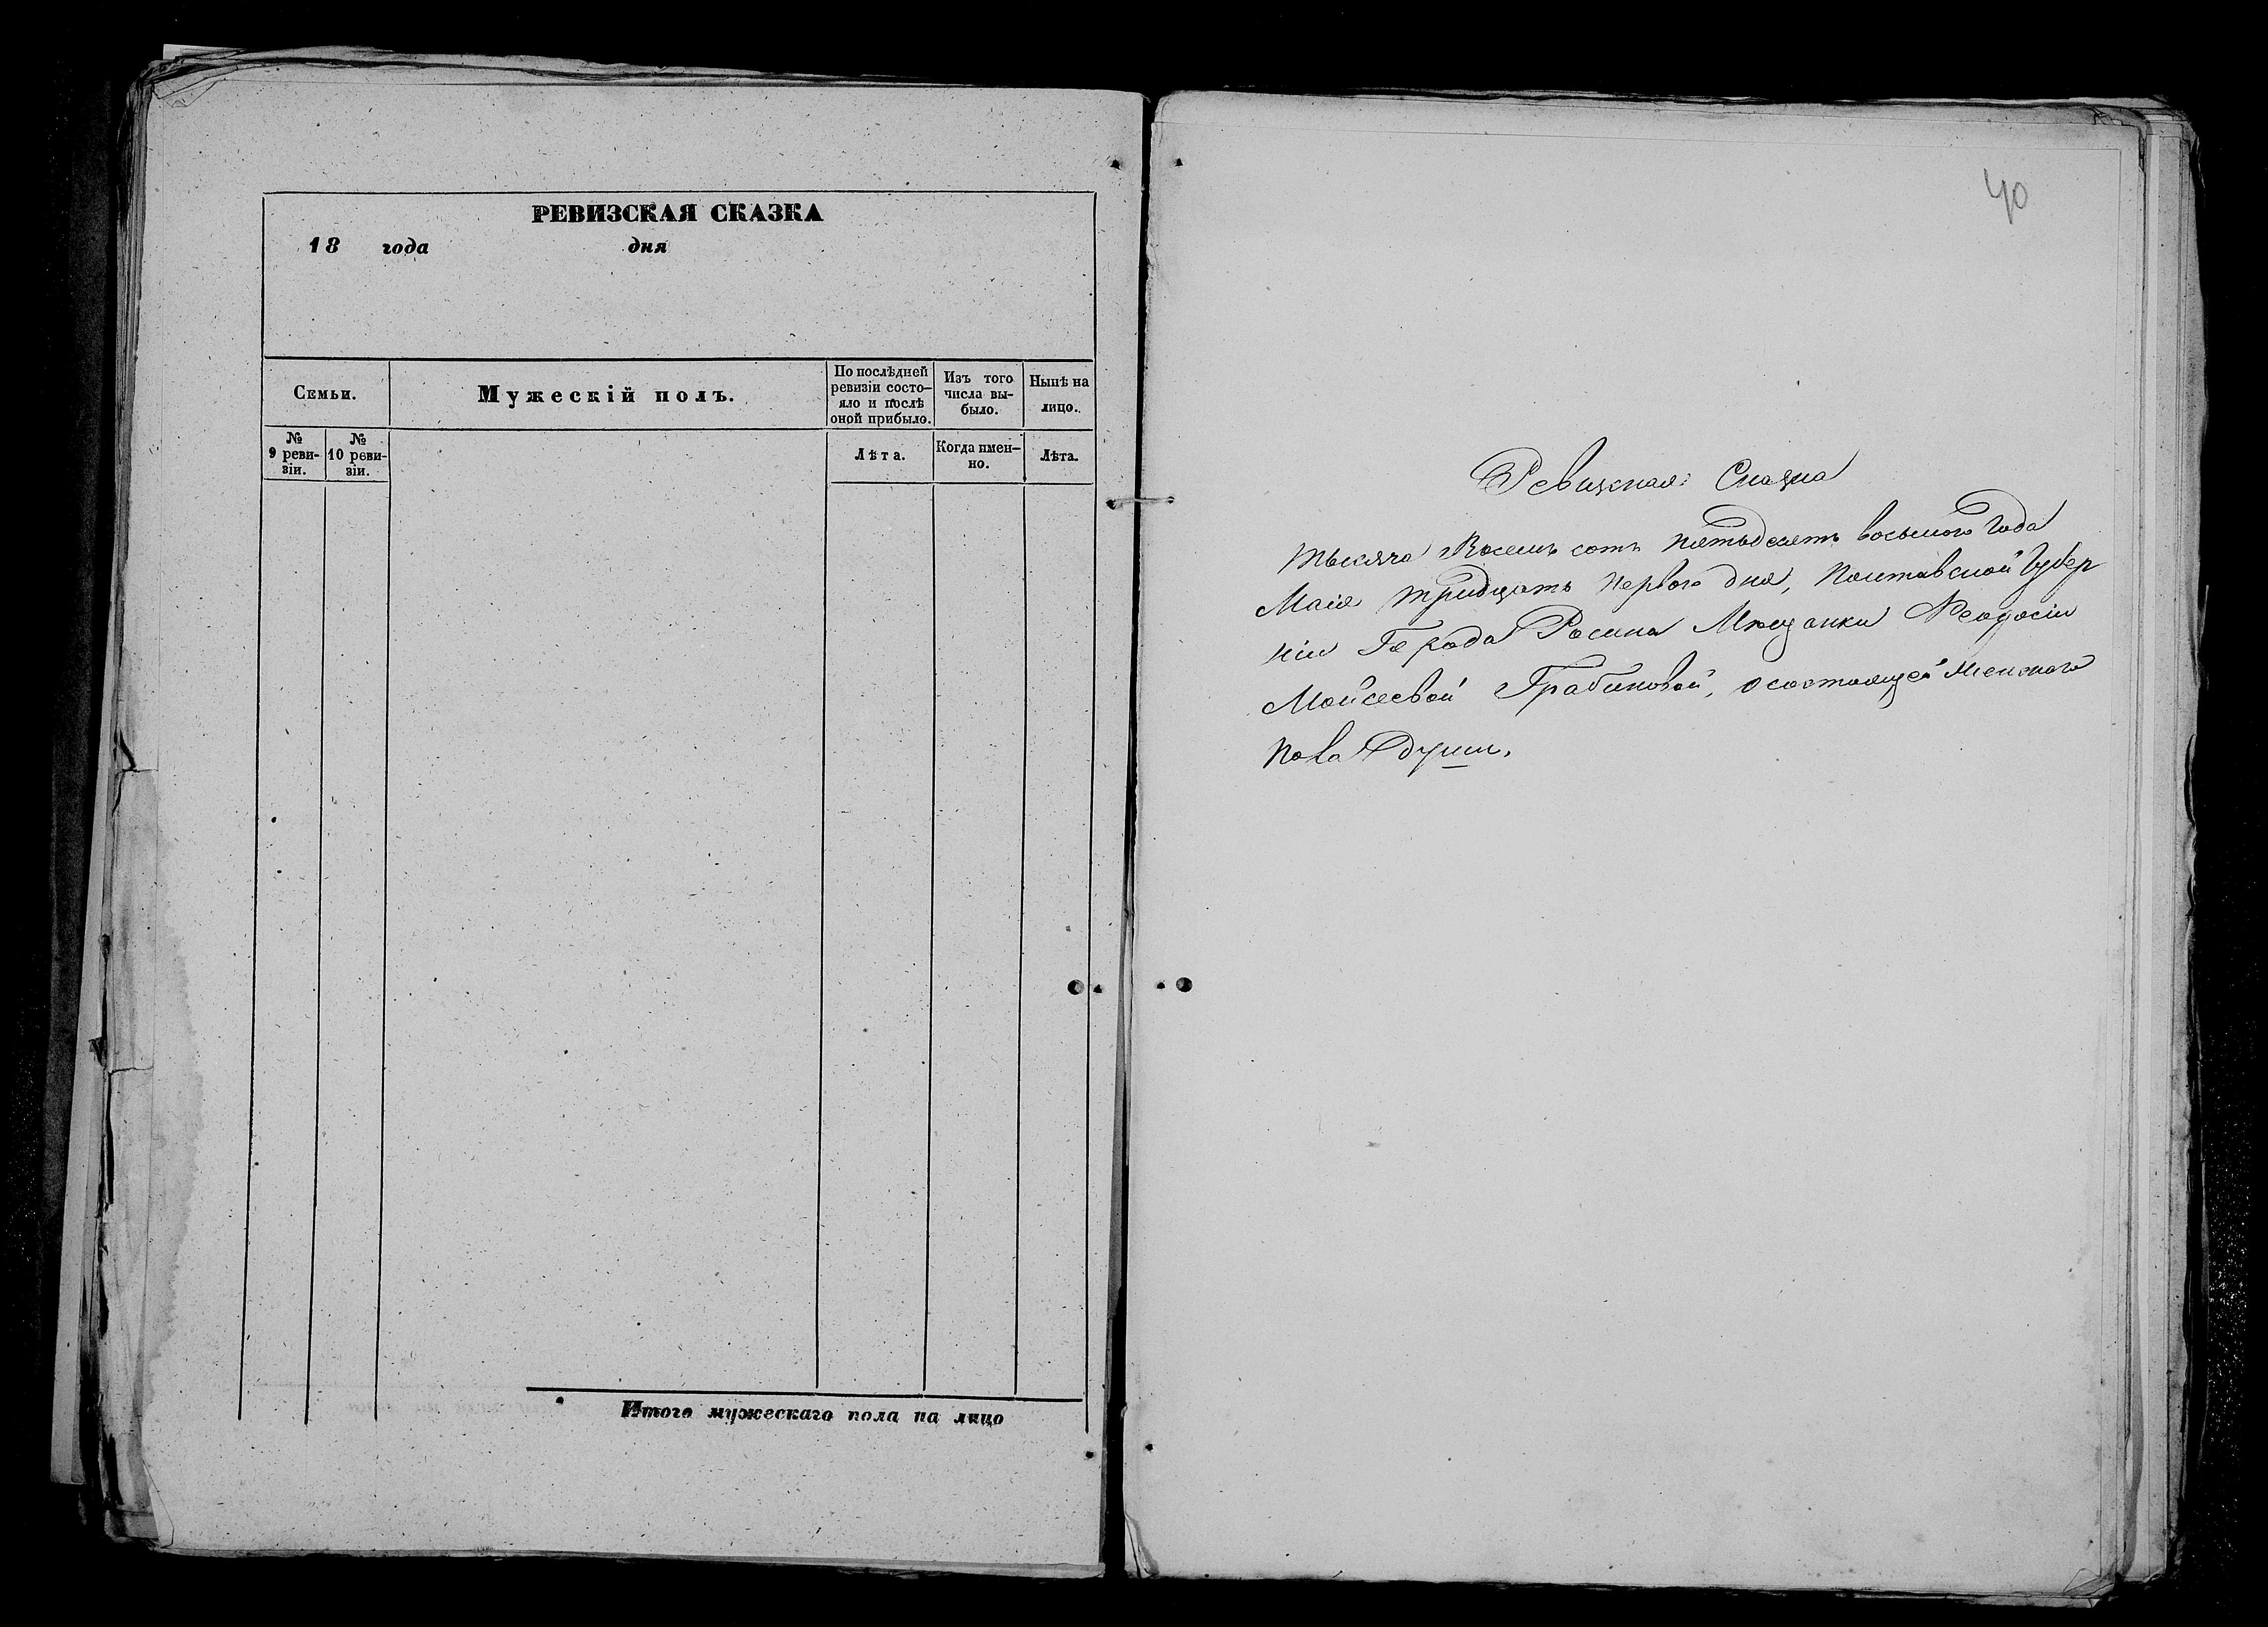 РЕВИЗСКАЯ СКАЗКА
18 года дня
Семьи.
Мужескій полъ.
По послѣдней
ревизіи состо-
яло и послѣ
оной прибыло.
Изъ того
числа вы-
было.
Нынѣ на
лицо.
№
9 реви-
зіи.
№
10 реви-
зіи.
Лѣта.
Когда имен-
но.
Лѣта.
Итого мужескаго пола на лицо
40
Ревизкая Сказка
Тысяча Восемь сотъ пятьдесятъ восьмого Года
Маія тридцать первого дня, Полтавской Губер
ніи Города Ромна Мѣщанки Феодосіи
Мойсеевой Грабиновой, о состоящей Женского
пола души.